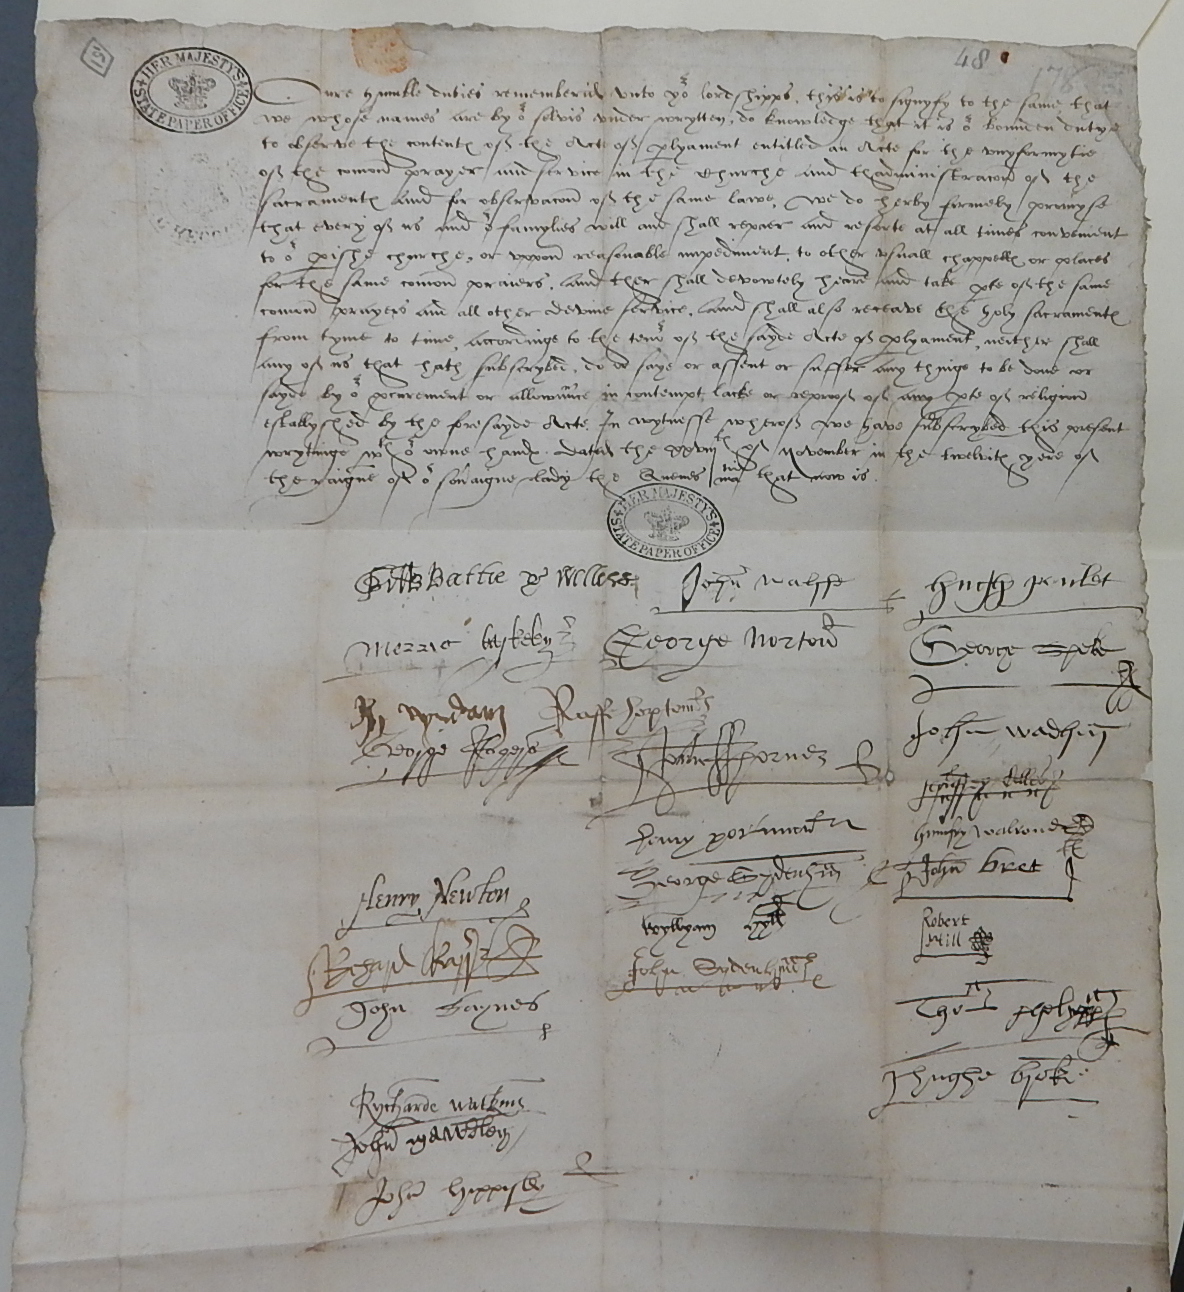 48
178
HER MAJESTY'S STATE PAPER OFFICE
Oure humble duties remembered unto yor lordshipps, this is to signyfy to the same that
we whose names are by or selvis under wrytten, do knowledge that it is or bounden dutye
to observe the contents off the Acte off plyament entitled an Acte for the unyformytie
off the comon prayer and service in the Churche and thadministracon off the
sacraments And for observacon off the same lawe, We do herby formely promyse
that every off us and or famylies will and shall repaer and resorte at all times convenient
to or pishe churche, or uppon reasonable impediment, to other usuall chappells or places
for the same comon praiers, And ther shall devowtely heare and take pte off the same
comon prayers and all other devine service, And shall also receave the holy sacraments
from tyme to time, accordinge to the tenor off the sayde Acte off plyament, neither shall
any off us that hath subscrybed, do or saye or assent or suffer any thinge to be done or
sayde by or pcurement or allowance in contempt, lacke or reprooff off any pte off religion
establlysched by the foresayde Acte In wytnesse wheroff we have subscrybed this present
wrytinge wth or owne hands. Dated the xxviijth off November in the twelvith yere off
the raigne off or soveraigne Lady the Quenes matie that now is.
HER MAJESTY'S STATE PAPER OFFICE
Gilb Bathe & Welles John Malss Hugh Paulet
George Norton George Speke
Raffe Hopton John Wadham
George Rogers
Henry Portman Humfry Walrond
Henry Newton George Sydenham John Bret
Wyllyam Hyll Robert
Hill
John Sydenham
John Baynes
Hughe Broke
Rycharde Watkins
John Mawdley
John Hippisley